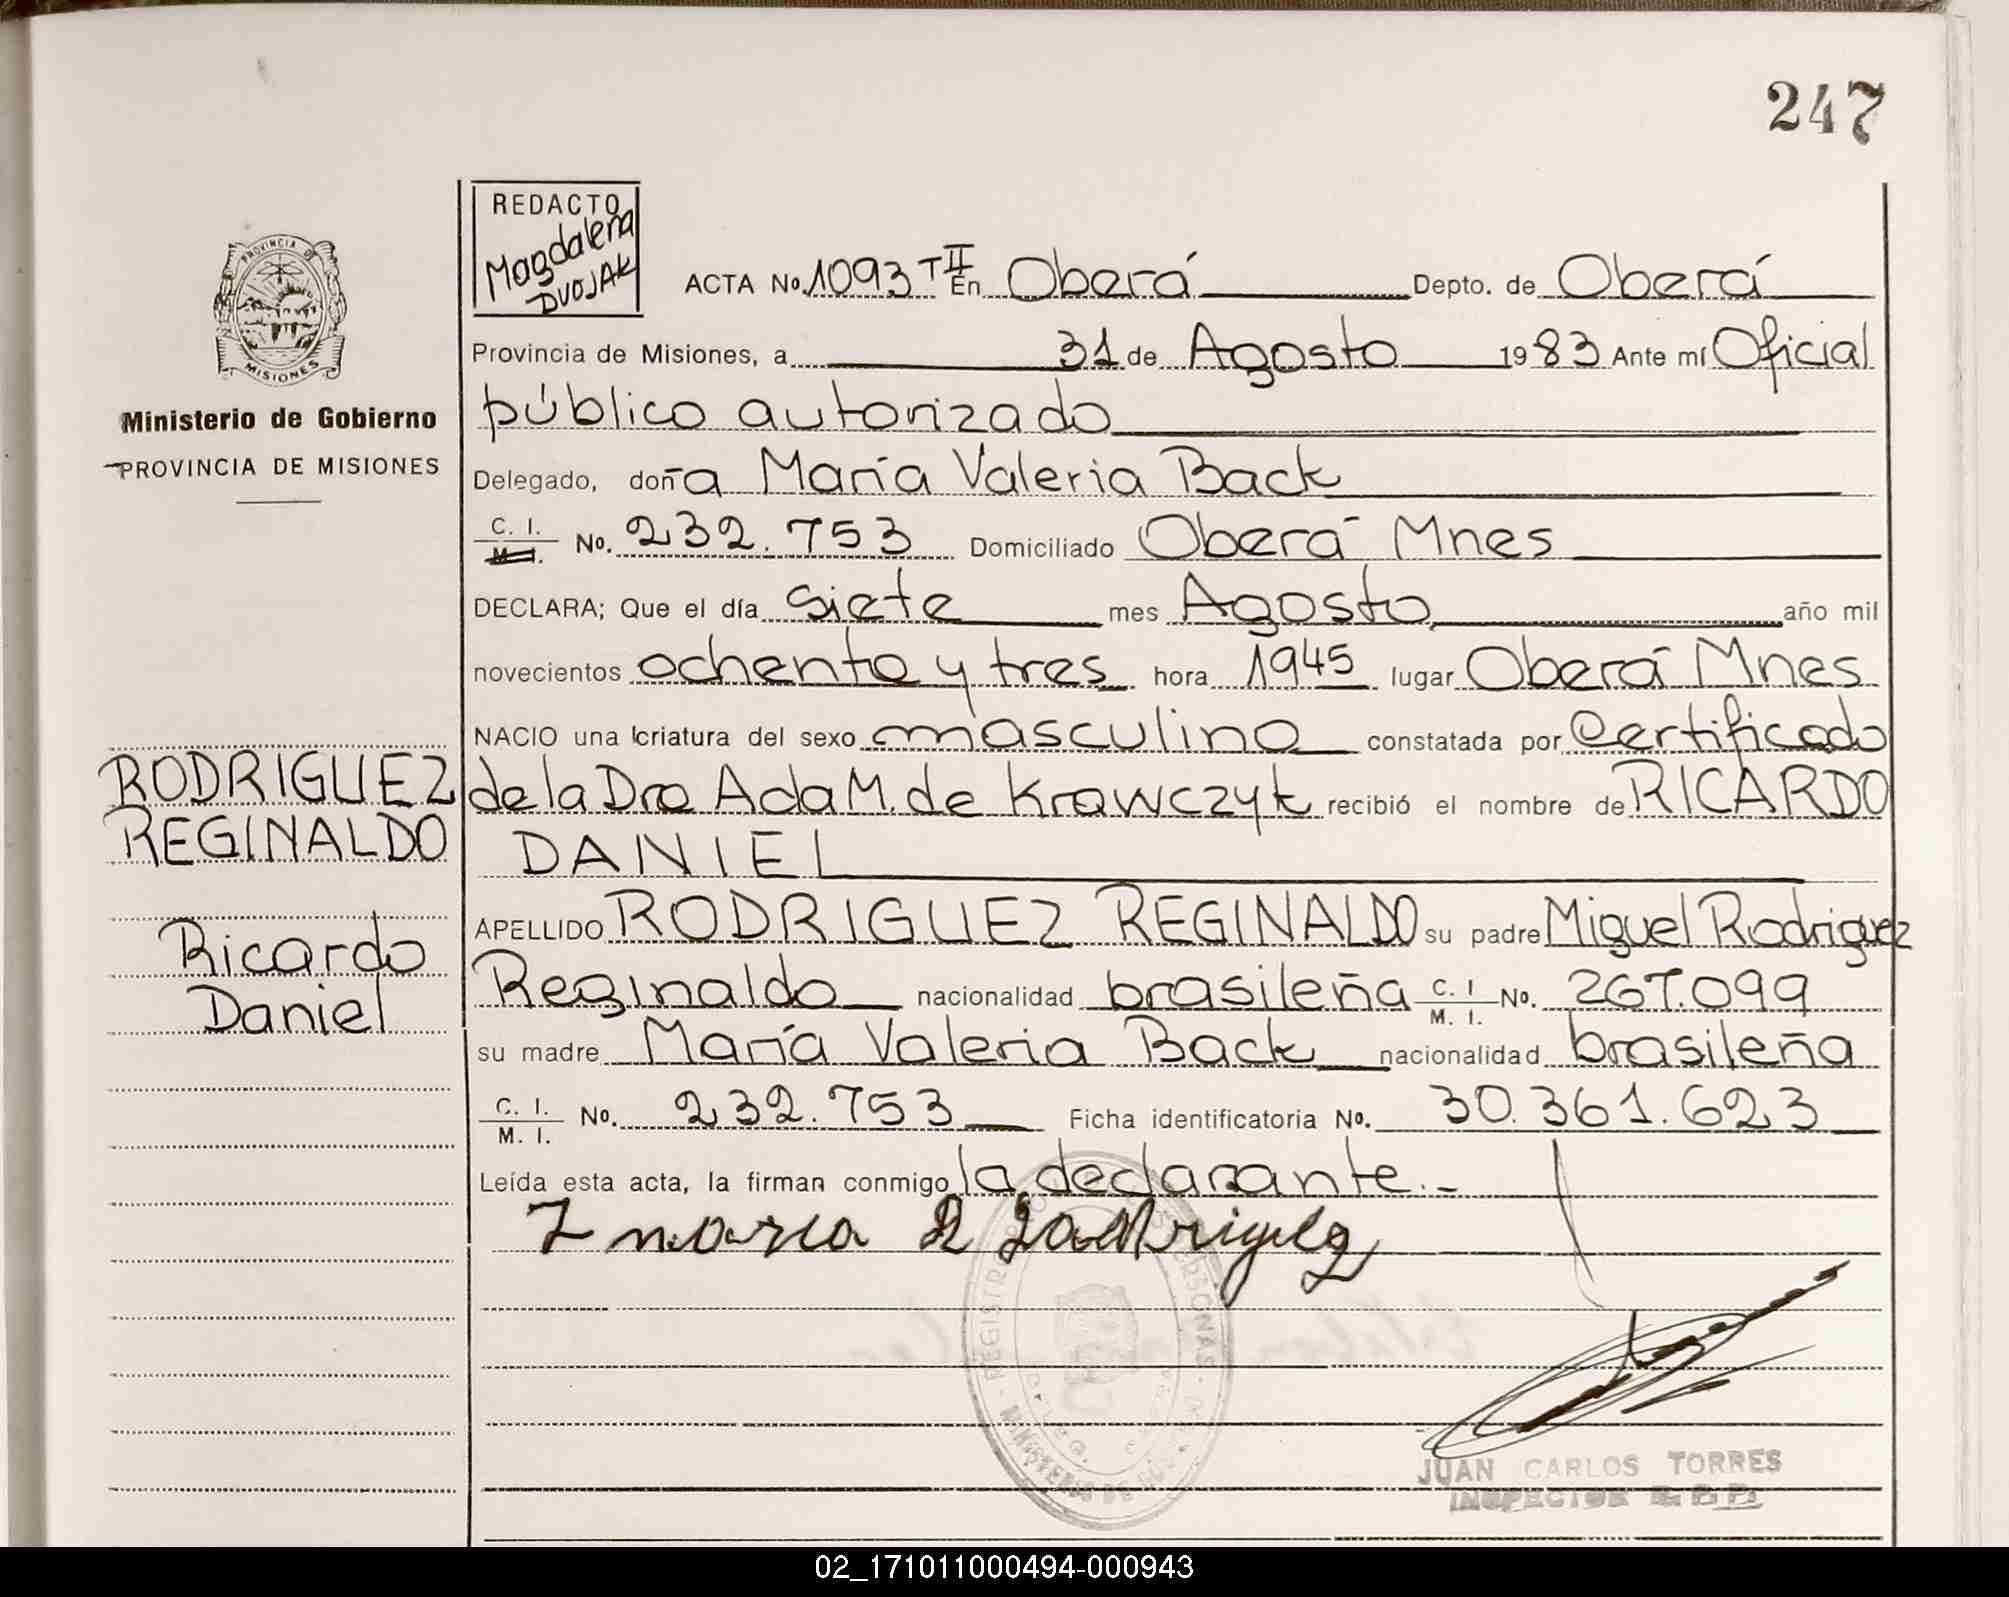 247
REDACTO
Magdalena
DVOJAK
ACTA No. 1093 T II En Oberá Depto. de Oberá
Provincia de Misiones, a 31 de Agosto 1983 Ante mí Oficial
público autorizado
PROVINCIA DE
MISIONES
Ministerio de Gobierno
PROVINCIA DE MISIONES
Delegado, doña María Valeria Back
C. I. M. I. No. 232.753 Domiciliado Oberá Mnes
DECLARA; Que el día siete mes Agosto año mil
novecientos ochenta y tres hora 1945 lugar Oberá Mnes
NACIO una criatura del sexo masculino constatada por Certificado
de la Dra Ada M. de Krawczyk recibió el nombre de RICARDO
DANIEL
RODRIGUEZ
REGINALDO
Ricardo
Daniel
APELLIDO RODRIGUEZ REGINALDO su padre Miguel Rodriguez
Reginaldo nacionalidad brasileña C. I M. I. No. 267.099
su madre María Valeria Back nacionalidad brasileña
C. I. M. I. No. 232.753 Ficha identificatoria No. 30.361.623
Leída esta acta, la firman conmigo la declarante.-
maria
JUAN CARLOS TORRES
INSPECTOR R. P. P.
02_171011000494-000943